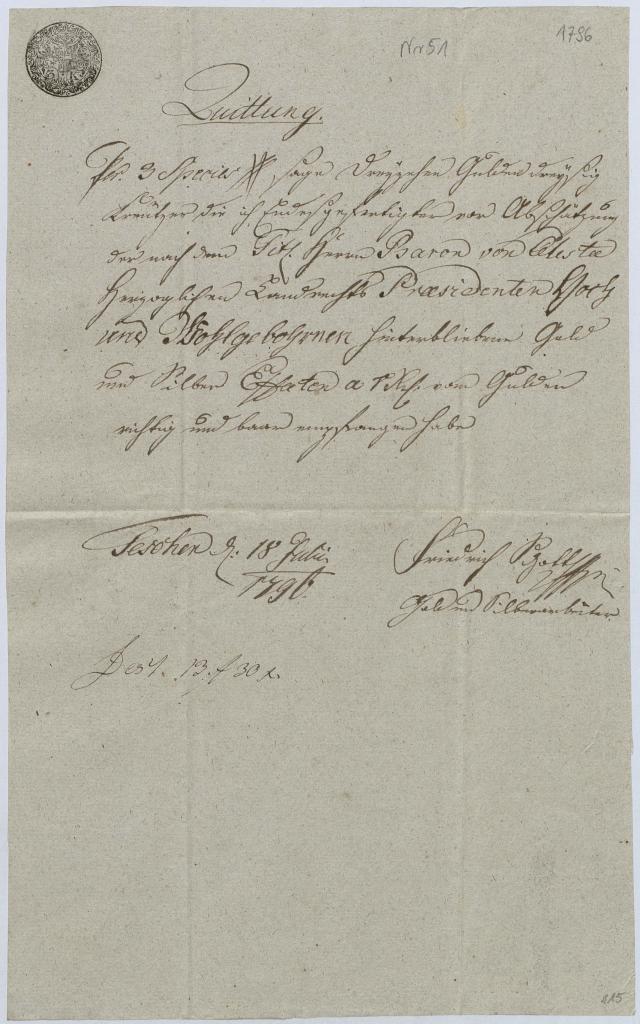 Nr 51
1796
Quittung.
Pr. 3 Species # sage Dreyzehen Gulden dreyßig
Kreutzer die ich Endesgefertigter vor Abschätzung
der nach dem Titl. Herrn Baron von
Herzoglichen Landrechts Præsidenten Hoch
und Wohlgebohrnen hinterbliebene Gold
und Silber Effecten a 1 vom Gulden
richtig und baar empfangen habe
Teschen d: 18 Julii
1796.
Friedrich
Gold und Silberarbeiter
13. f 30 x.
215